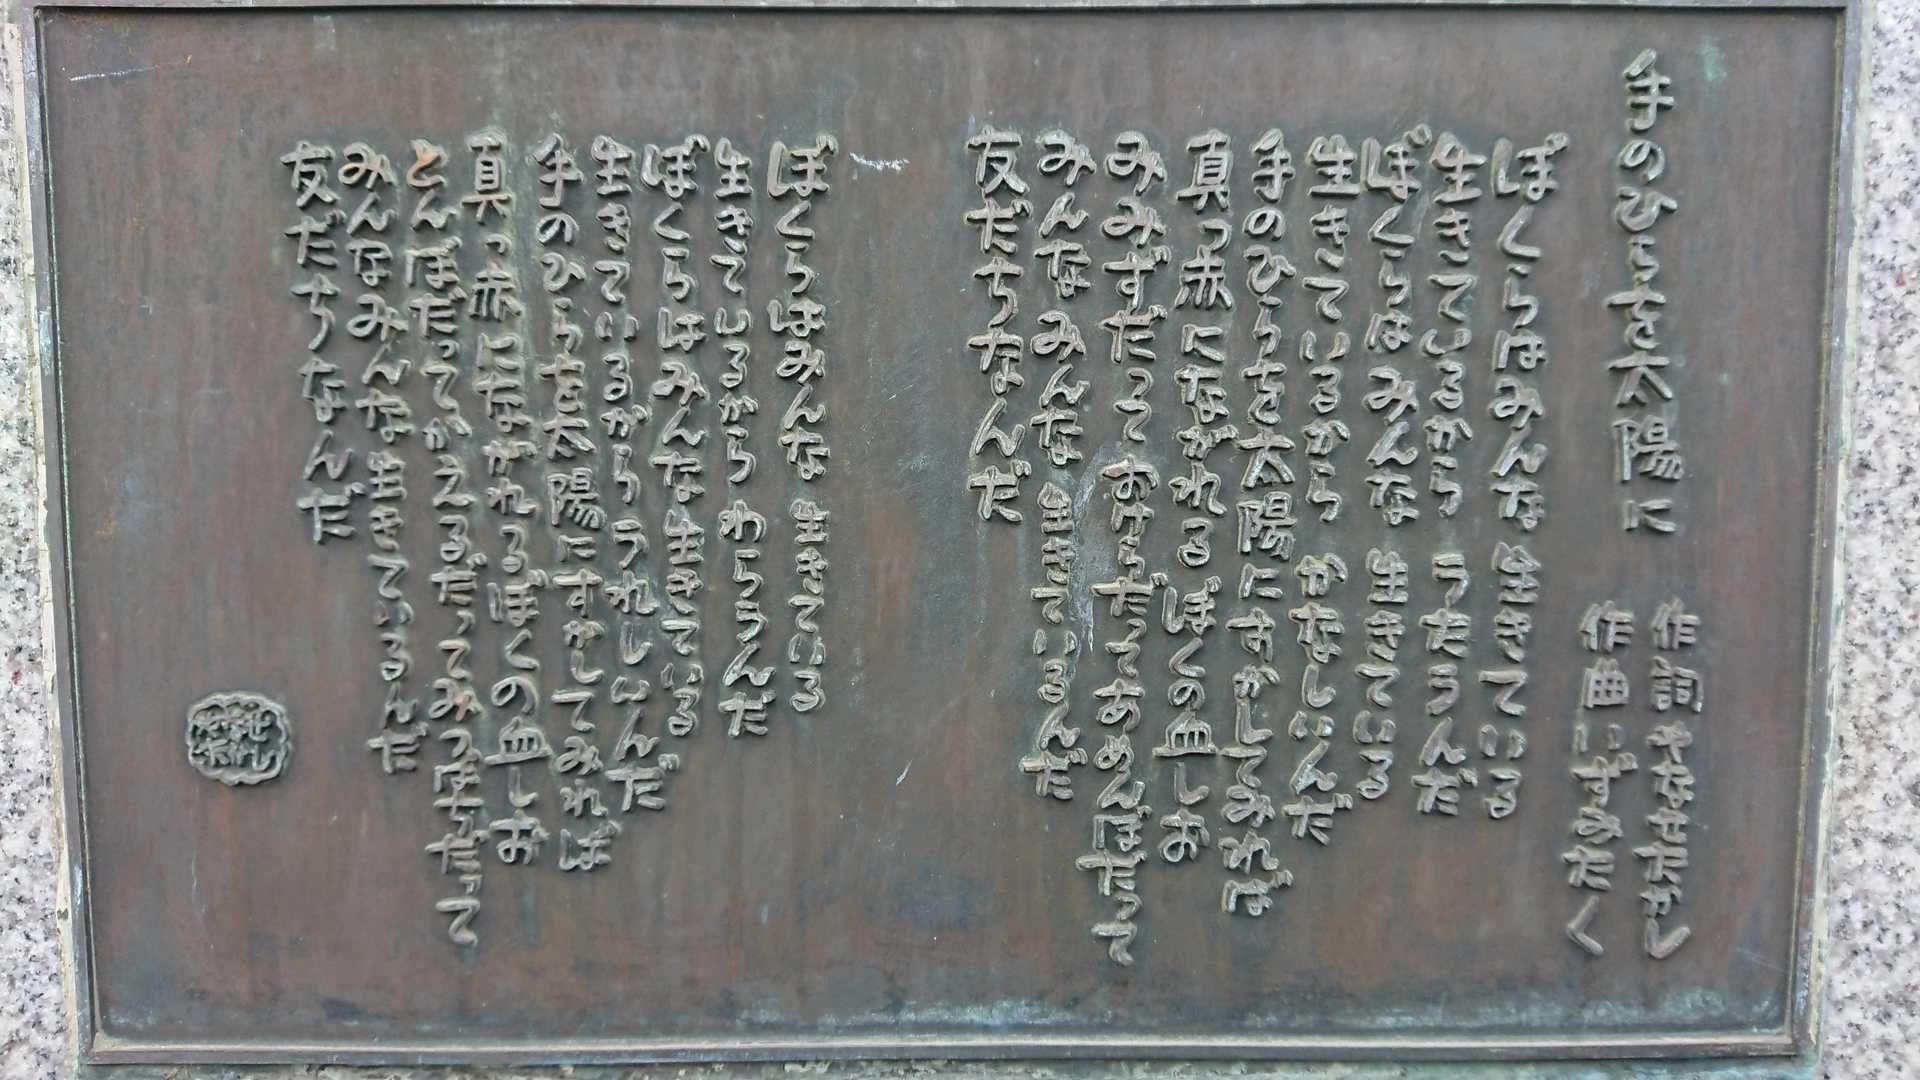 手のひらを太陽に
作詞 やなせたかし
作曲 いずみたく
ぼくらはみんな 生きている
生きているから うたうんだ
ぼくらはみんな 生きている
生きているから かなしいんだ
手のひらを太陽にすかしてみれば
真っ赤にながれる ぼくの血しお
みみずだって おけらだって あめんぼだって
みんなみんな 生きているんだ
友だちなんだ
ぼくらはみんな 生きている
生きているから わらうんだ
ぼくらはみんな生きている
生きているから うれしいんだ
手のひらを太陽にすかしてみれば
真っ赤にながれるぼくの血しお
とんぼだってかえるだってみつばちだって
みんなみんな生きているんだ
友だちなんだ